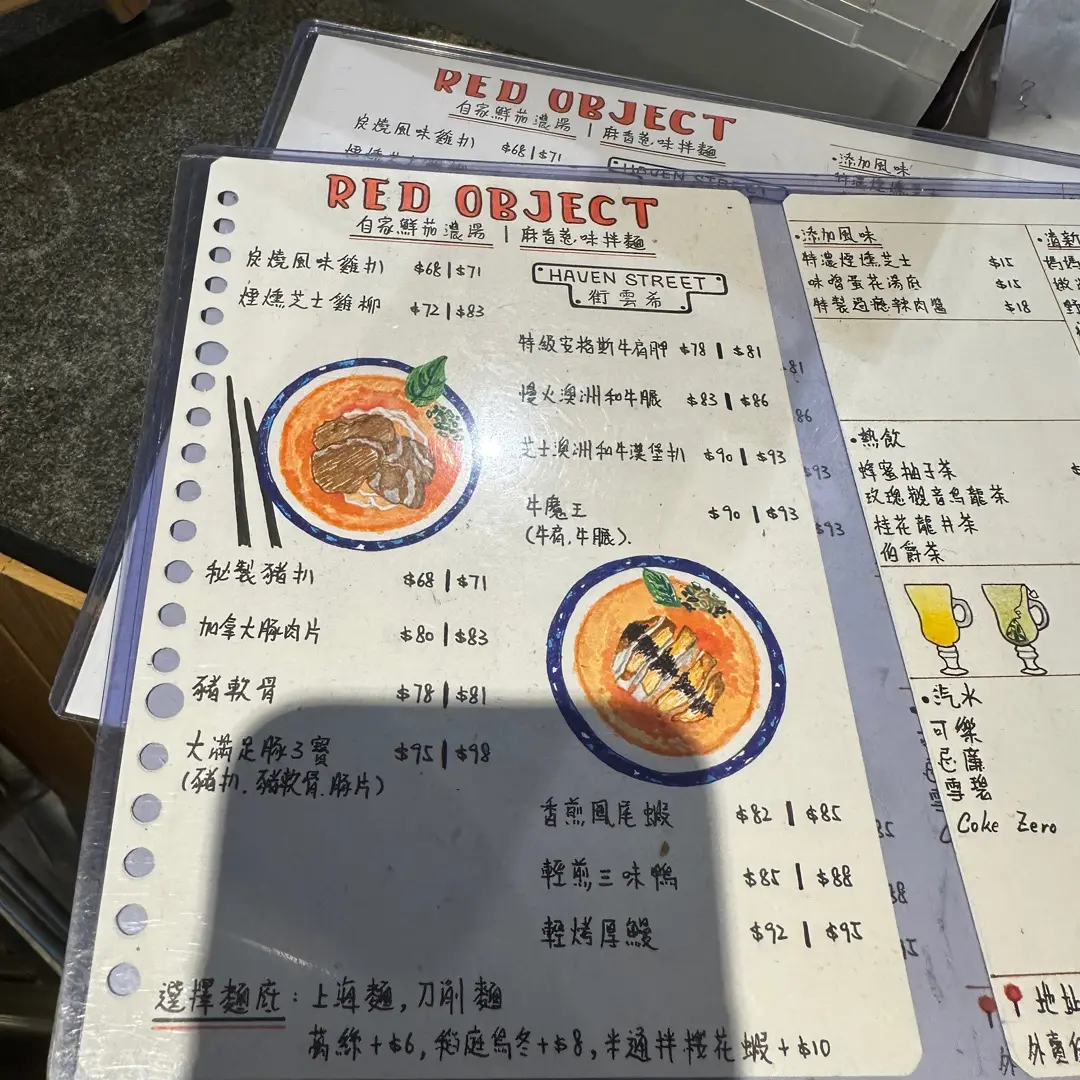 RED OBJECT
自家鮮茄濃湯 | 麻香蔥味拌麵
炭燒風味雞扒 $68 | $71
RED OBJECT
自家鮮茄濃湯 | 麻香蔥味拌麵
炭燒風味雞扒 $68 | $71
煙燻芝士雞柳 $72 | $83
HAVEN STREET
街雲希
特級安格斯牛肩胛 $78 | $81
慢火澳洲和牛𦟌 $83 | $86
芝士澳洲和牛漢堡扒 $90 | $93
牛魔王 $90 | $93
(牛肩.牛𦟌).
秘製豬扒 $68 | $71
加拿大豚肉片 $80 | $83
豬軟骨 $78 | $81
大滿足豚3寶 $95 | $98
(豬扒.豬軟骨.豚片)
香煎鳳尾蝦 $82 | $85
輕煎三味鴨 $85 | $88
輕烤厚鰻 $92 | $95
選擇麵底:上海麵,刀削麵
萬絲+$6,稻庭烏冬+$8,半通拌櫻花蝦+$10
•添加風味
•添加風味
特濃煙燻芝士 $15
味噌蛋花湯底 $15
特製過癮辣肉醬 $18
•熱飲
蜂蜜柚子茶
玫瑰觀音烏龍茶
桂花龍井茶
伯爵茶
•汽水
可樂
忌廉
雪碧
Coke Zero
地址
外賣